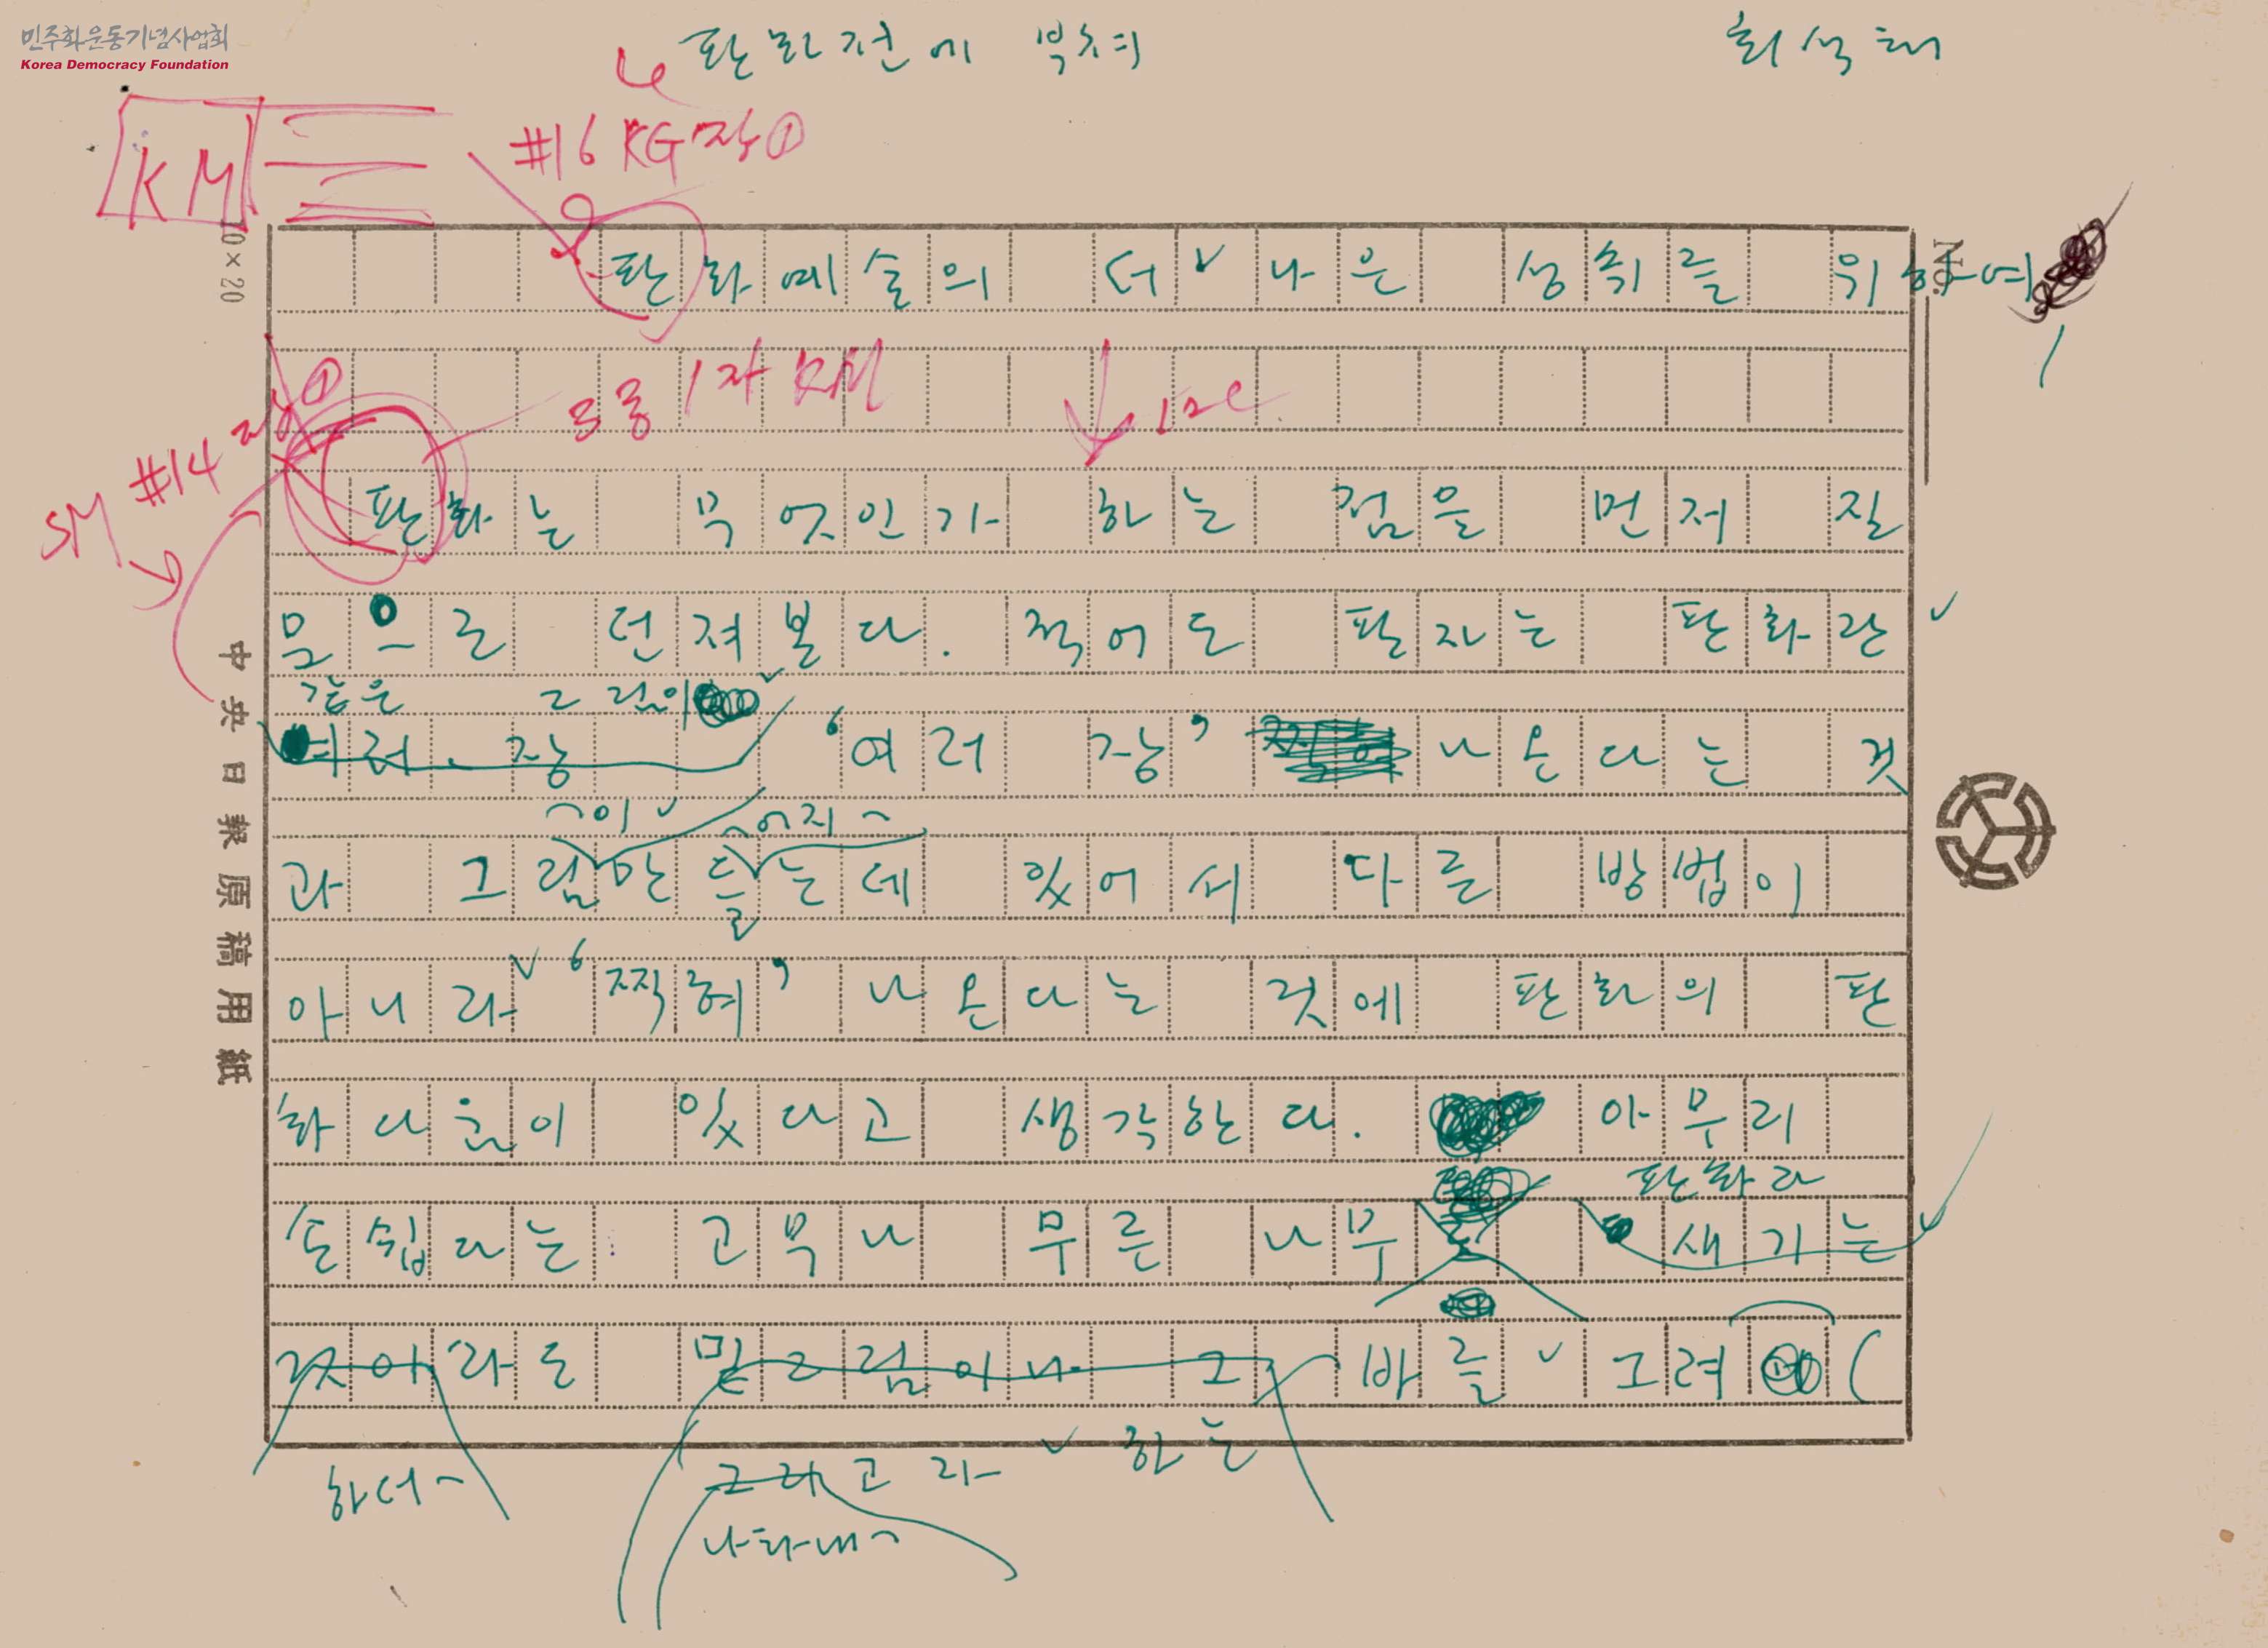 민주화운동기념사업회
Korea Democracy Foundation
판화전에 부쳐
최석태
KM
#16 KG 장①
10×20
판화예술의 더 나은 성취를 위하여
No.
1자 KM
SM #14 장①
판화는 무엇인가 하는 점을 먼저 질
문으로 던져본다. 적어도 판자는 판화란
같은 그림이
여러 장 '여러 장' 나온다는 것
이 어지
과 그림만들는데 있어서 다른 방법이
아니라 '찍혀' 나온다는 것에 판화의 판
화다움이 있다고 생각한다. 아무리
판화라
손쉽다는 고무나 무른 나무 새기는
것이라도 밑그림이나 그 바를 그려
하더
그리고라 하는
나타내
中央日報原稿用紙